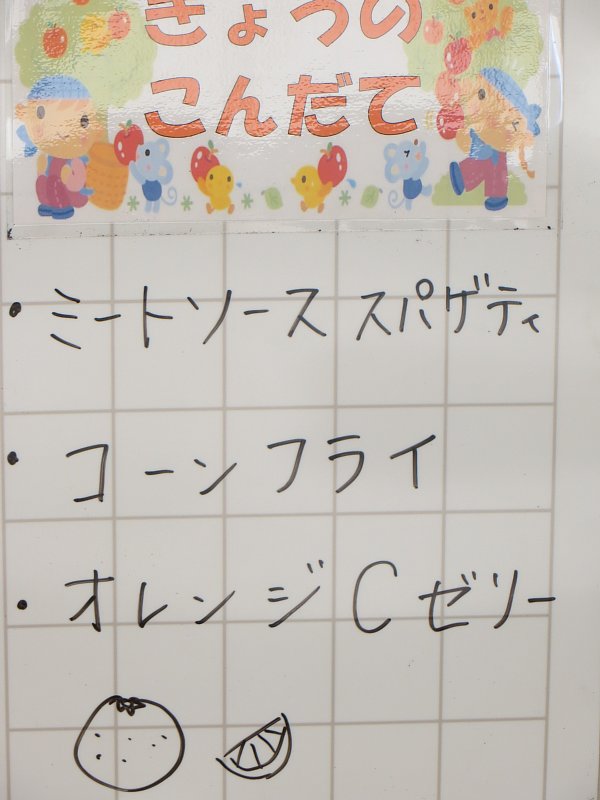 きょうの
こんだて
・ミートソース スパゲティ
・コーンフライ
・オレンジCゼリー